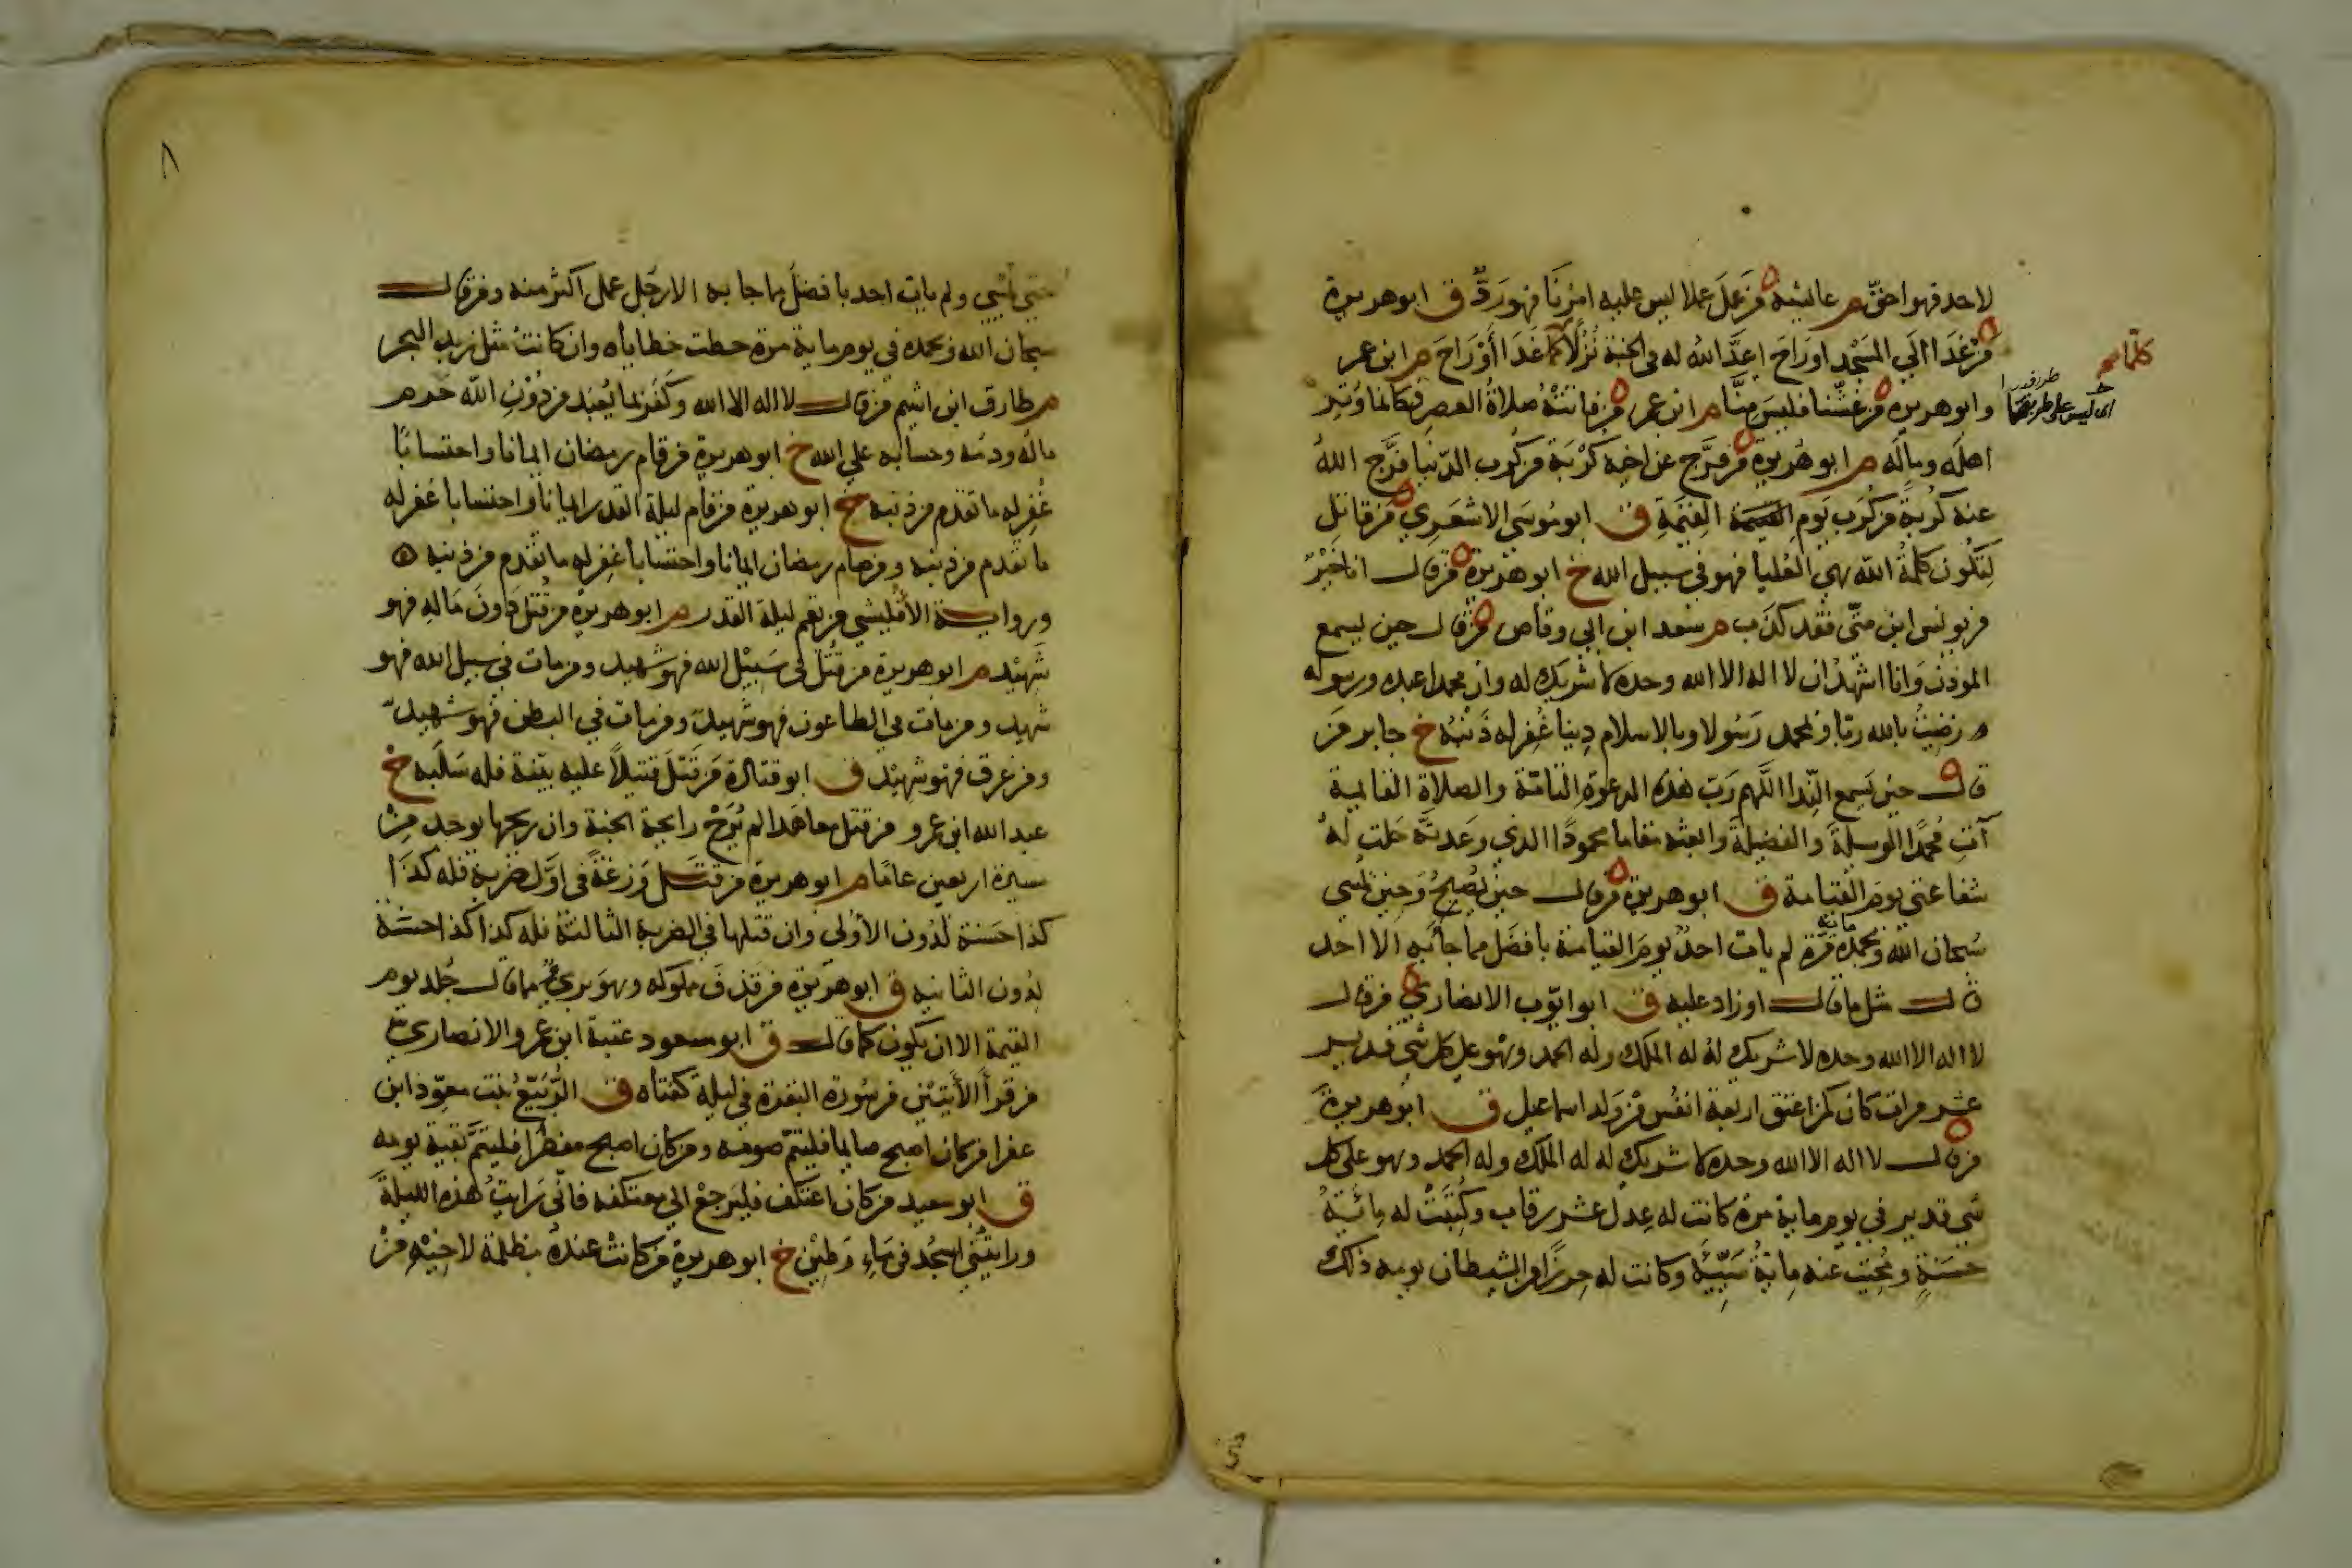 لاحد فهو احق م عائشة من عمل عملا ليس عليه امرنا فهو رد ق ابو هريرة
من غدا الي المسجد او راح اعد الله له في الجنة نزلا كلما غدا أو راح م ابن عمر
كلما صح
وابو هريرة من غشنا فليس منا م ابن عمر من فاتته صلاة العصر فكانما وتر
اي ليس علي طريقتنا
اهله وماله م ابو هريرة من فرج عن اخيه كربة من كرب الدنيا فرج الله
عنه كربة من كرب يوم القيمة ق ابو موسي الاشعري من قاتل
لتكون كلمة الله هي العليا فهو في سبيل الله خ ابو هريرة من قال انا خير
من يونس ابن متي فقد كذب م سعد ابن ابي وقاص من قال حين يسمع
الموذن وانا اشهد ان لا اله الا الله وحده لا شريك له وان محمدا عبده ورسوله
رضيت بالله ربا وبمحمد رسولا وبالاسلام دينا غفر له ذنبه خ جابر من
قال حين يسمع الندا اللهم رب هذه الدعوة التامة والصلاة القايمة
آت محمدا الوسيلة والفضيلة وابعثه مقاما محمودا الذي وعدته حلت له
شفاعتي يوم القيامة ق ابو هريرة من قال حين يصبح وحين يمسي
سبحان الله وبحمده مايه مرة لم يات احد يوم القيامة بافضل مما جا به الا احد
قال مثل ما قال او زاد عليه ق ابو ايوب الانصاري من قال
لا اله الا الله وحده لا شريك له له الملك وله الحمد وهو علي كل شي قدير
عشر مرات كان كمن اعتق اربعة انفس من ولد اسماعيل ق ابو هريرة
من قال لا اله الا الله وحده لا شريك له له الملك وله الحمد وهو علي كل
شي قدير في يوم ماية مرة كانت له عدل عشر رقاب وكتبت له مائة
حسنة ومحيت عنه ماية سيئة وكانت له حرزا من الشيطان يومه ذلك
٨
حتي يمسي ولم يات احد بافضل ما جا به الا رجل عمل اكثر منه ومن قال
سبحان الله وبحمده في يوم ماية مرة حطت خطاياه وان كانت مثل زبد البحر
م طارق ابن اشيم من قال لا اله الا الله وكفر بما يعبد من دون الله حرم
ماله ودمه وحسابه علي الله خ ابو هريرة من قام رمضان ايمانا واحتسابا
غفر له ما تقدم من ذنبه خ ابو هريرة من قام ليلة القدر ايمانا واحتسابا غفر له
ما تقدم من ذنبه ومن صام رمضان ايمانا واحتسابا غفر له ما تقدم من ذنبه
ورواية الأقليشي من يقم ليلة القدر م ابو هريرة من قتل دون ماله فهو
شهيد م ابو هريرة من قتل في سبيل الله فهو شهيد ومن مات في سبيل الله فهو
شهيد ومن مات في الطاعون فهو شهيد ومن مات في البطن فهو شهيد
ومن غرق فهو شهيد ق ابو قتادة من قتل قتيلا عليه بينة فله سلبه خ
عبد الله ابن عمرو من قتل معاهدا لم يرح رايحة الجنة وان ريحها يوجد من
مسيرة اربعين عاما م ابو هريرة من قتل وزغة في اول ضربة فله كذا
كذا حسنة لدون الأولي وان قتلها في الضربة الثالثة فله كذا كذا حسنة
لدون الثانية ق ابو هريرة من قذف مملوكه وهو بري مما قال جلد يوم
القيمة الا ان يكون كما قال ق ابو مسعود عقبة ابن عمرو الانصاري
من قرأ الأيتين من سورة البقرة في ليلة كفتاه ق الربيع بنت معوذ ابن
عفرا من كان اصبح صايما فليتم صومه ومن كان اصبح مفطرا فليتم بقية يومه
ق ابو سعيد من كان اعتكف فليرجع الي معتكفه فاني رايت هذه الليلة
ورايتني اسجد في ماء وطين خ ابو هريرة من كانت عنده مظلمة لاخيه من